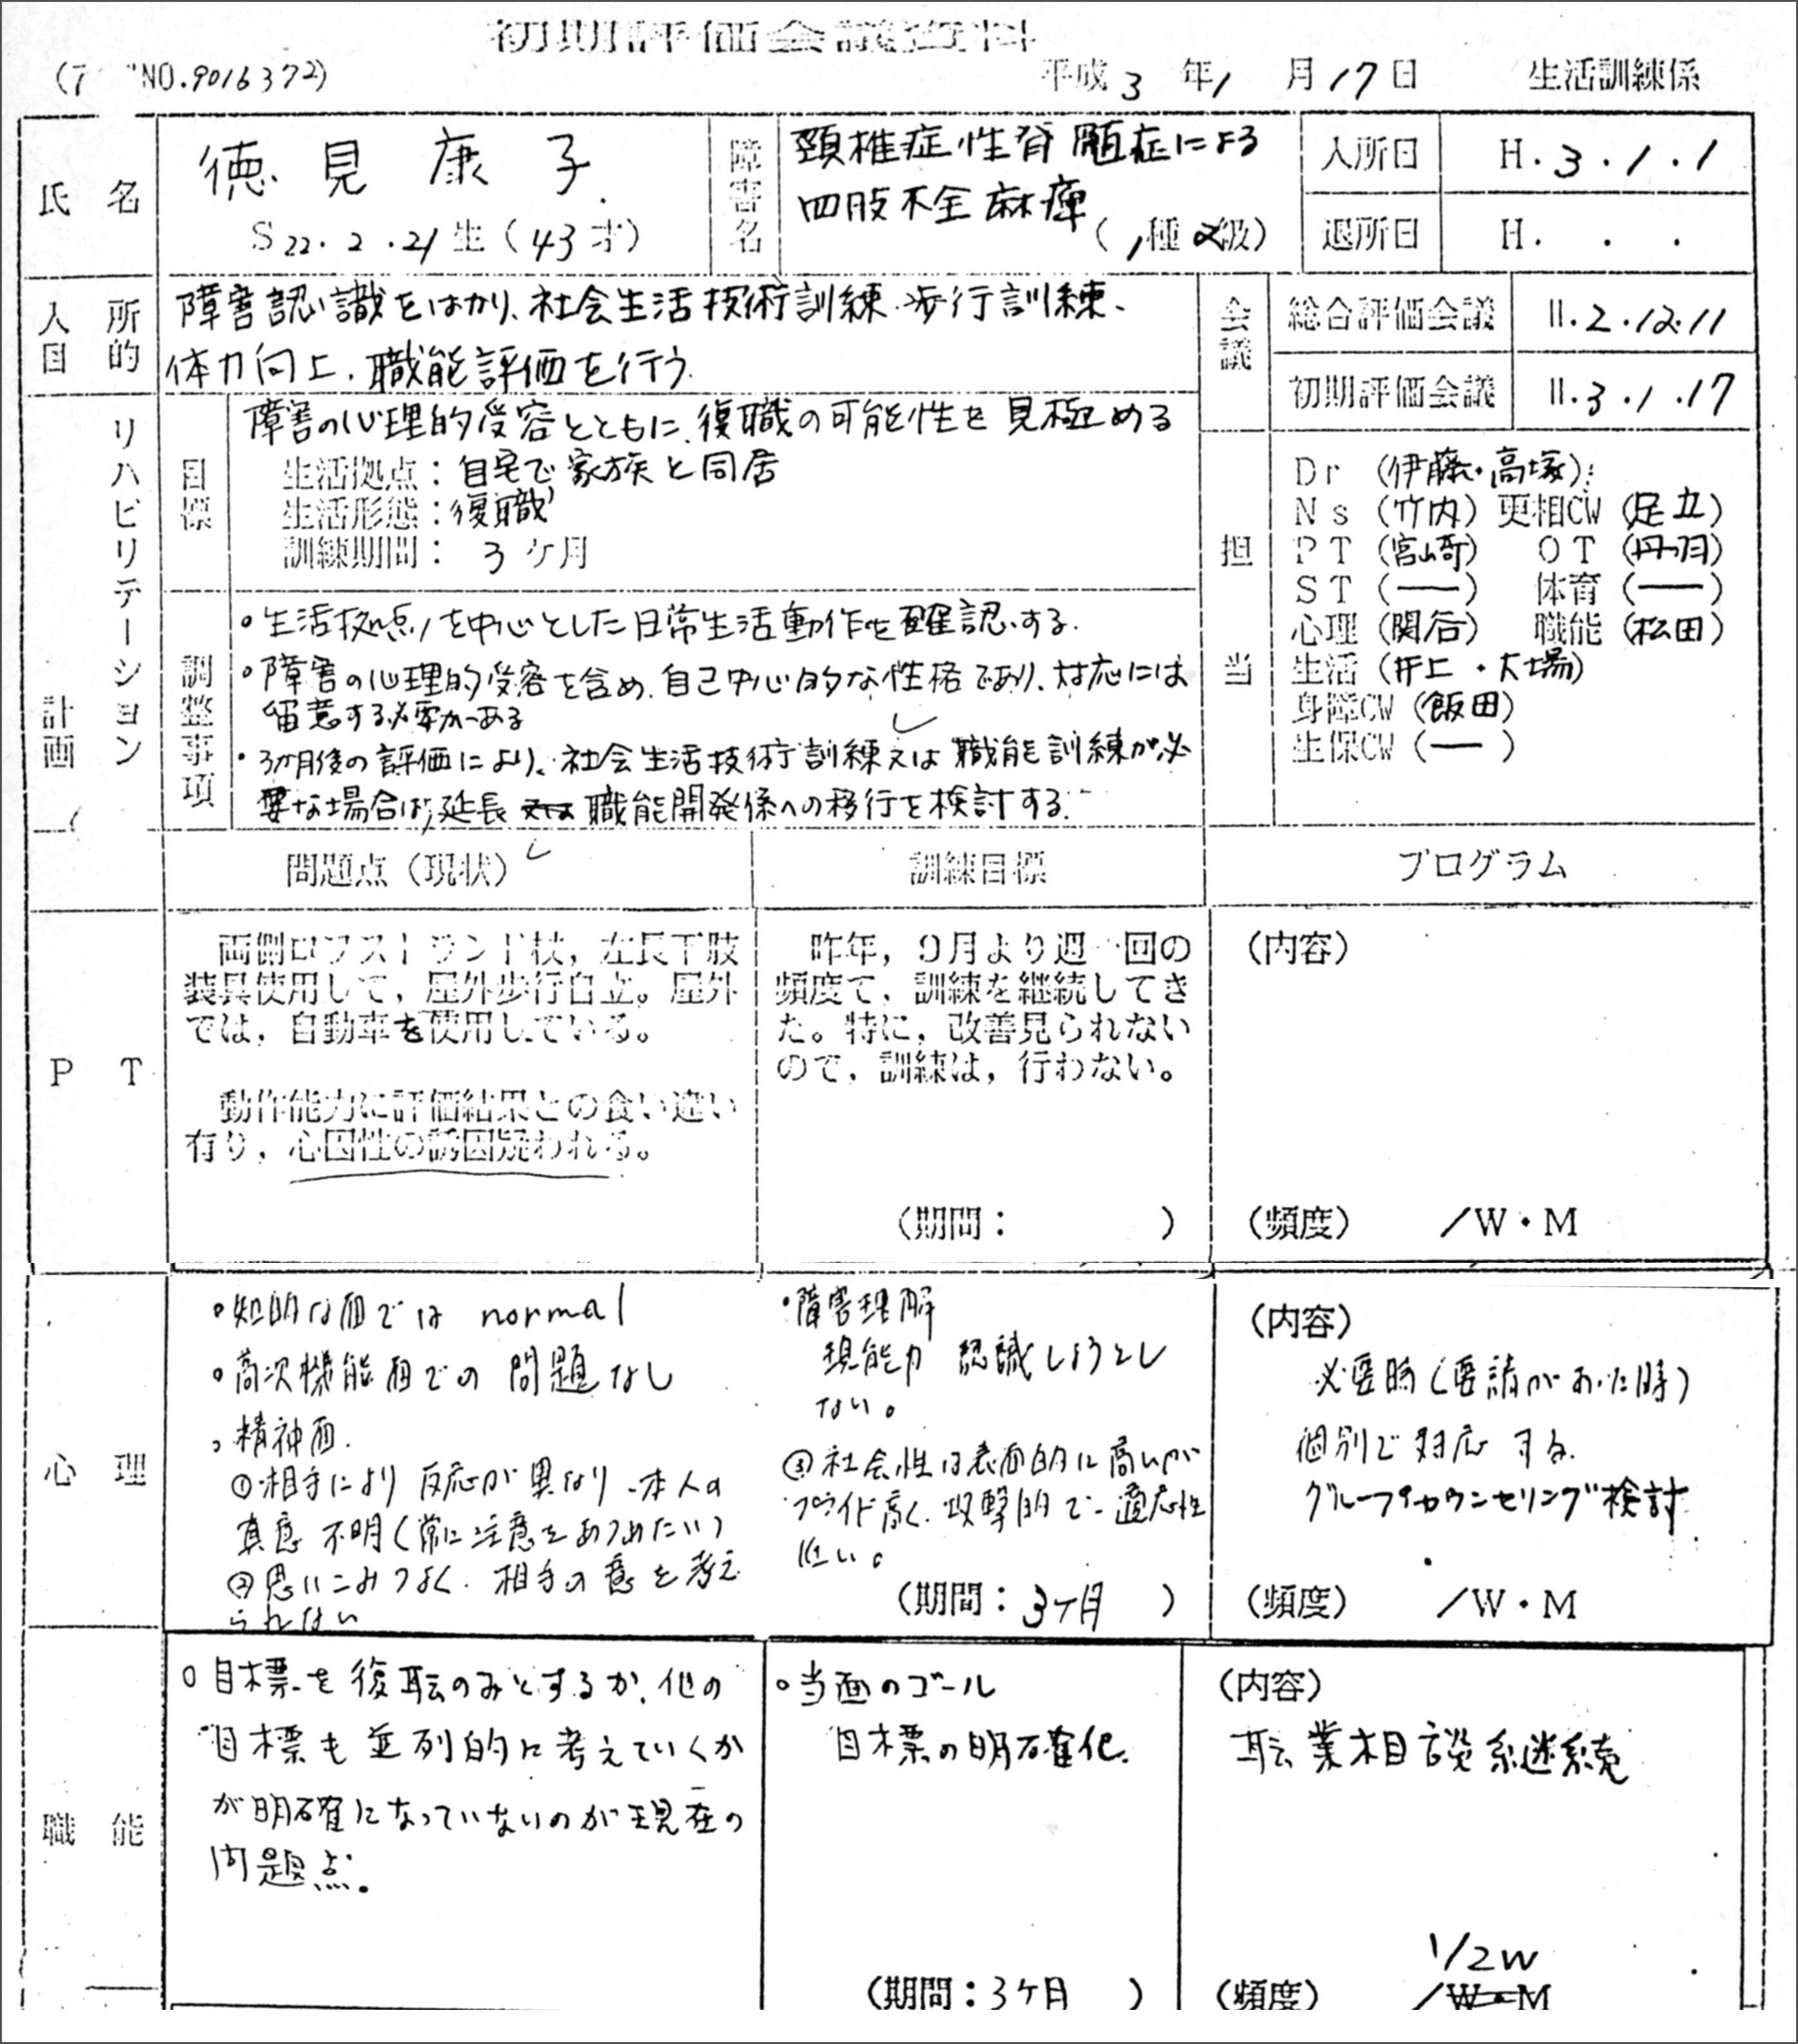 初期評価会議資料
NO.9016372)
平成 3 年 1 月 17 日 生活訓練係
氏 名
徳 見 康 子
S22.2.21生(43才)
障害名
頸椎症性脊髄症による
四肢不全麻痺
(1種2級)
入所日 H.3.1.1
退所日 H. . .
入所目的
障害認識をはかり、社会生活技術訓練・歩行訓練、
体力向上、職能評価を行う
会議
総合評価会議 H.2.12.11
初期評価会議 H.3.1.17
リハビリテーション計画
目標
障害の心理的受容とともに、復職の可能性を見極める
生活拠点:自宅で家族と同居
生活形態:復職
訓練期間: 3ヶ月
調整事項
・生活拠点を中心とした日常生活動作を確認する.
・障害の心理的受容を含め、自己中心的な性格であり、対応には
留意する必要がある
・3ヶ月後の評価により、社会生活技術訓練又は職能訓練が必
要な場合は,延長 又は 職能開発係への移行を検討する.
担当
Dr (伊藤・高塚)
Ns (竹内) 更相CW (足立)
PT (宮崎) OT (丹羽)
ST (―) 体育 (―)
心理 (関谷) 職能 (松田)
生活 (井上・大場)
身障CW (飯田)
生保CW (―)
問題点(現状) 訓練目標 プログラム
PT
両側ロフストランド杖,左長下肢
装具使用して,屋外歩行自立。屋外
では,自動車を使用している。
動作能力に評価結果との食い違い
有り,心因性の誘因疑われる。
昨年,9月より週一回の
頻度で,訓練を継続してき
た。特に,改善見られない
ので,訓練は,行わない。
(期間: )
(内容)
(頻度) /W・M
心 理
・知的な面では normal
・高次機能面での問題なし
・精神面.
①相手により反応が異なり、本人の
真意 不明(常に注意をあつめたい)
②思いこみつよく、相手の意を考え
られない
・障害理解
現能力 認識しようとし
ない。
③社会性は表面的に高いが
プライド高く、攻撃的で適応性
低い。
(期間:3ヶ月 )
(内容)
必要時(要請があった時)
個別で対応する.
グループカウンセリング検討
(頻度) /W・M
職 能
○目標を復職のみとするか、他の
目標も並列的に考えていくか
が明確になっていないのが現在の
問題点。
○当面のゴール
目標の明確化.
(期間:3ヶ月 )
(内容)
職業相談継続
1/2W
(頻度) /W・M